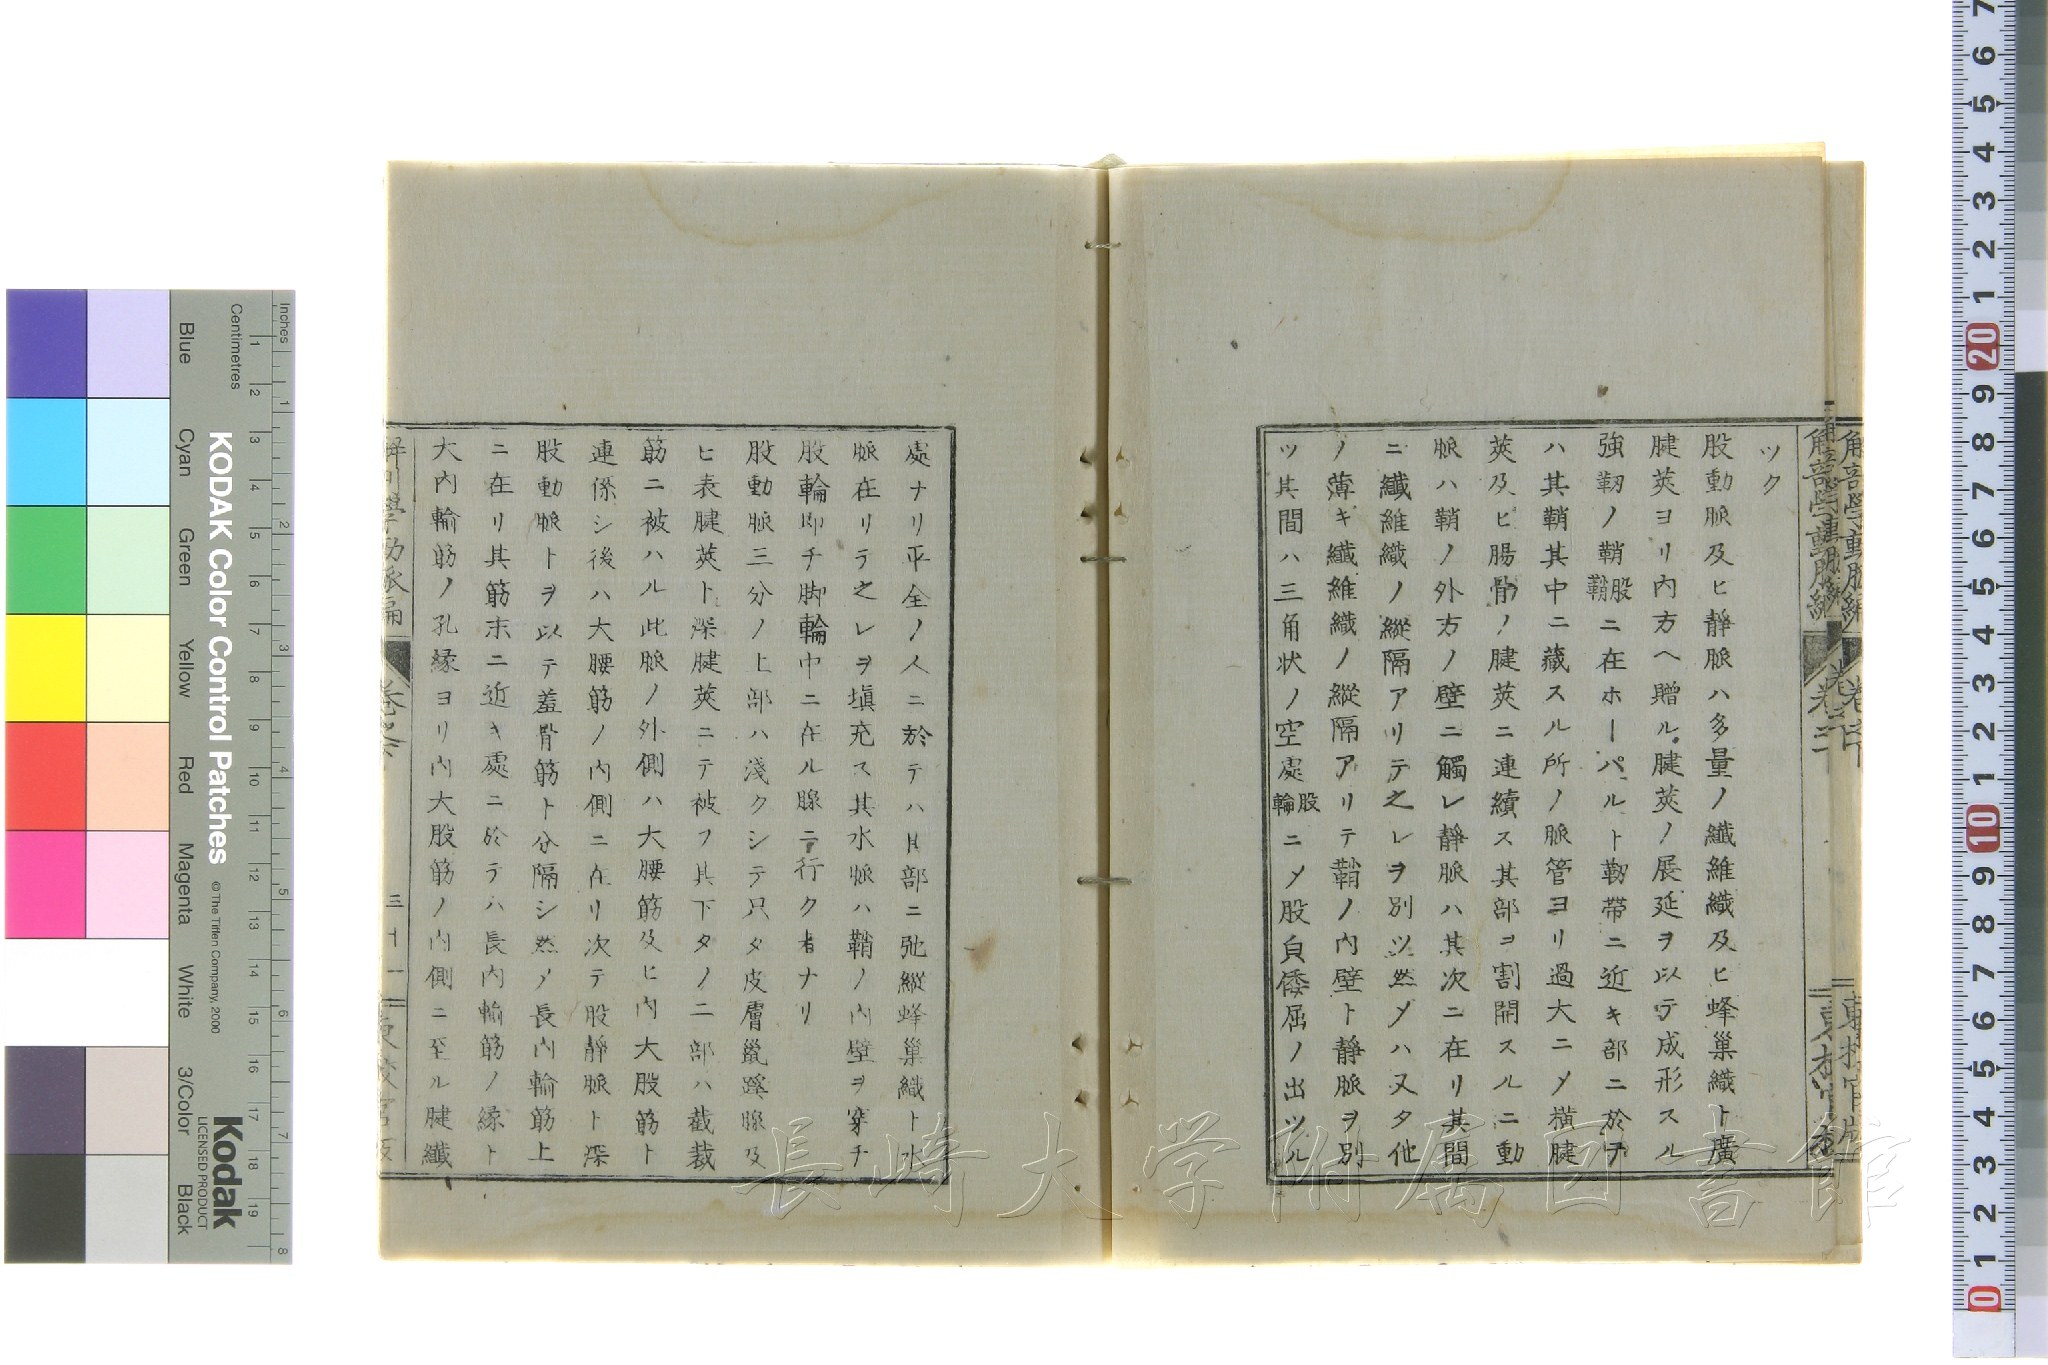 ツク
股動脈及ヒ靜脈ハ多量ノ纖維織及ヒ蜂巢織ト廣
腱莢ヨリ内方ヘ贈ル腱莢ノ展延ヲ以テ成形スル
強靱ノ鞘股鞘ニ在ホーパルト靱帶ニ近キ部ニ於テ
ハ其鞘其中ニ藏スル所ノ脈管ヨリ過大ニメ横腱
莢及ヒ腸骨ノ腱莢ニ連續ス其部ヲ割開スルニ動
脈ハ鞘ノ外方ノ壁ニ觸レ靜脈ハ其次ニ在リ其間
ニ纖維織ノ縱隔アリテ之レヲ別ツ然メハ又タ他
ノ薄キ纖維織ノ縱隔アリテ鞘ノ内壁ト靜脈ヲ別
ツ其間ハ三角状ノ空處股輪ニメ股貟倭屈ノ出ツル
處ナリ平全ノ人ニ於テハ其部ニ弛縱蜂巢織ト水
脈在リテ之レヲ塡充ス其水脈ハ鞘ノ内壁ヲ穿チ
股輪即チ脚輪中ニ在ル腺ニ行ク者ナリ
股動脈三分ノ上部ハ淺クシテ只タ皮膚鼠蹊腺及
ヒ表腱莢ト深腱莢ニテ被フ其下タノ二部ハ截裁
筋ニ被ハル此脈ノ外側ハ大腰筋及ヒ内大股筋ト
連係シ後ハ大腰筋ノ内側ニ在リ次テ股靜脈ト深
股動脈トヲ以テ羞骨筋ト分隔シ然メ長内輪筋上
ニ在リ其筋末ニ近キ處ニ於テハ長内輪筋ノ縁ト
大内輪筋ノ孔縁ヨリ内大股筋ノ内側ニ至ル腱纖
三十一
長崎大学附属図書館
KODAK Color Control Patches
© The Tiffen Company, 2000
Kodak
LICENSED PRODUCT
Inches
Centimetres
Blue
Cyan
Green
Yellow
Red
Magenta
White
3/Color
Black